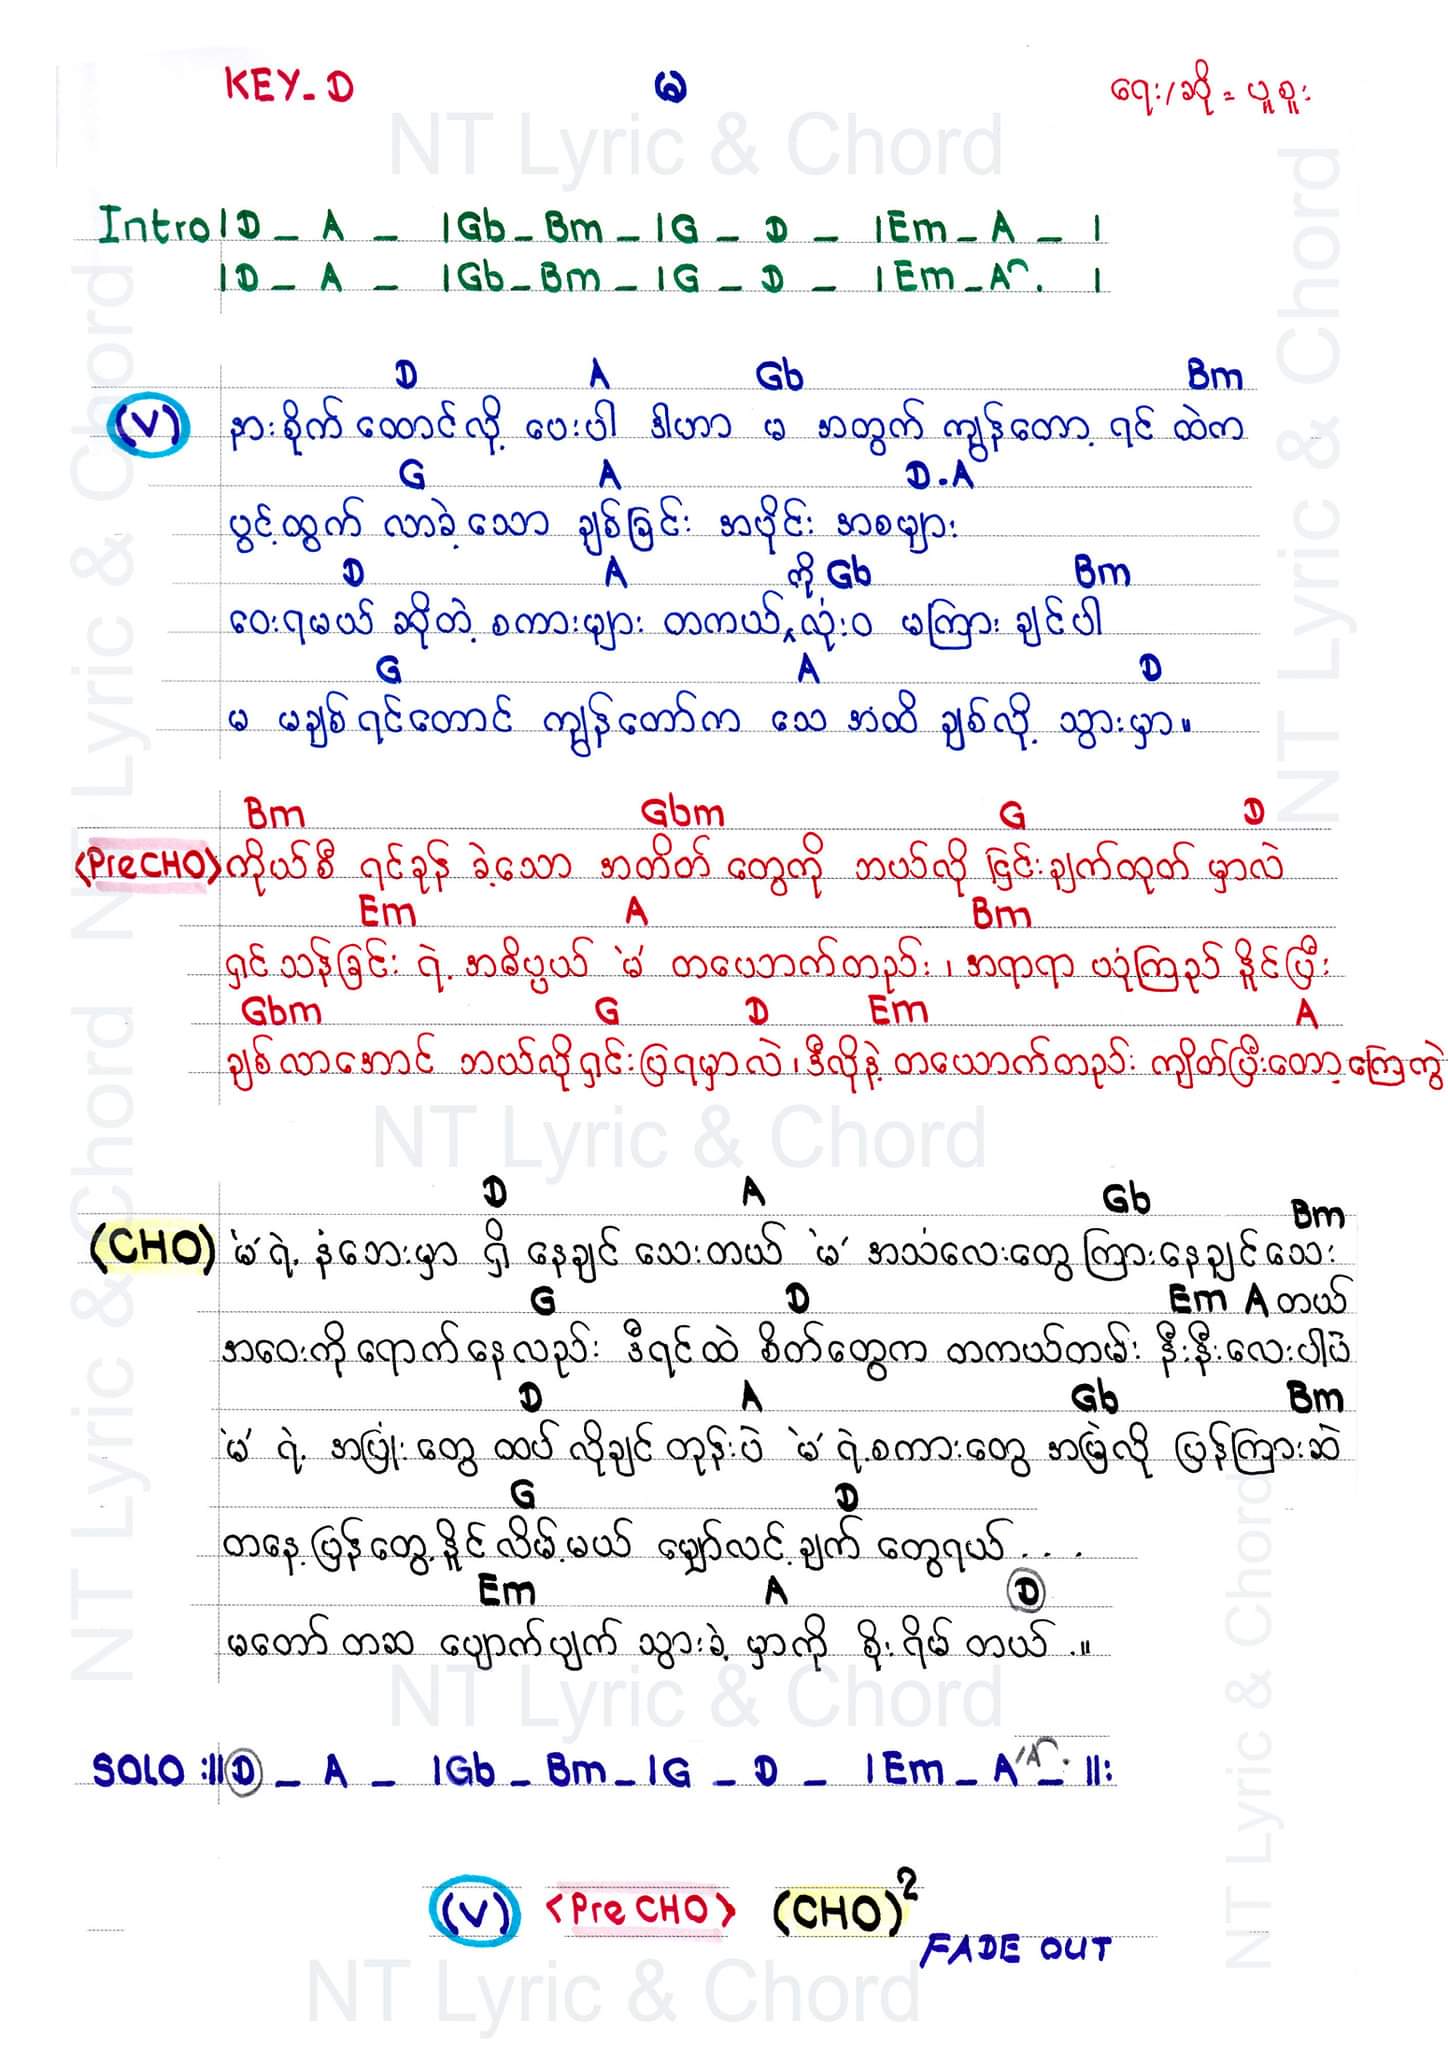 KEY_D မ ရေး/ဆို = ယူစူး
NT Lyric & Chord
Intro |D _ A _ |Gb _ Bm _ |G _ D _ |Em _ A _ |
|D _ A _ |Gb _ Bm _ |G _ D _ |Em _ A . |
D A Gb Bm
(V) နားစိုက် ထောင်လို့ ပေးပါ ဒါဟာ မ အတွက် ကျွန်တော့ ရင် ထဲက
G A D.A
ပွင့်ထွက် လာခဲ့သော ချစ်ခြင်း အပိုင်း အစများ
D A ကို Gb Bm
ဝေးရမယ် ဆိုတဲ့ စကားများ တကယ် လုံးဝ မကြား ချင်ပါ
G A D
မ မချစ်ရင်တောင် ကျွန်တော်က သေ အထိ ချစ်လို့ သွားမှာ။
Bm Gbm G D
<PreCHO> ကိုယ်စီ ရင်ခုန် ခဲ့သော အတိတ် တွေကို ဘယ်လို ငြင်းချက်ထုတ် မှာလဲ
Em A Bm
ရှင်သန်ခြင်း ရဲ့ အဓိပ္ပယ် 'မ' တပေဘက်တည်း ၊ အရာရာ ယုံကြည် နိူင်ပြီး
Gbm G D Em A
ချစ်လာအောင် ဘယ်လိုရှင်းပြရမှာလဲ ၊ ဒီလိုနဲ့ တယောက်တည်း ကျိတ်ပြီးတော့ကြေကွဲ
NT Lyric & Chord
D A Gb Bm
(CHO) 'မ' ရဲ့ နံဘေးမှာ ရှိ နေချင် သေးတယ် 'မ' အသံလေးတွေ ကြားနေချင်သေး
G D Em A တယ်
အဝေးကိုရောက်နေလည်း ဒီရင်ထဲ စိတ်တွေက တကယ်တမ်း နီးနီးလေးပါပဲ
D A Gb Bm
'မ' ရဲ့ အပြုံးတွေ ထပ် လိုချင် တုန်းပဲ 'မ' ရဲ့စကားတွေ အမြဲလို ပြန်ကြားဆဲ
G D
တနေ့ပြန်တွေ့နိူင်လိမ့်မယ် မျှော်လင့်ချက် တွေရယ် . . . .
Em A D
မတော်တဆ ပျောက်ပျက် သွားခဲ့ မှာကို စိုးရိမ် တယ် .။
NT Lyric & Chord
SOLO :||D _ A _ |Gb _ Bm _ |G _ D _ |Em _ A 'A . _ ||:
(V) <Pre CHO> (CHO)²
FADE OUT
NT Lyric & Chord
NT Lyric & Chord
NT Lyric & Chord
NT Lyric & Chord
NT Lyric & Chord